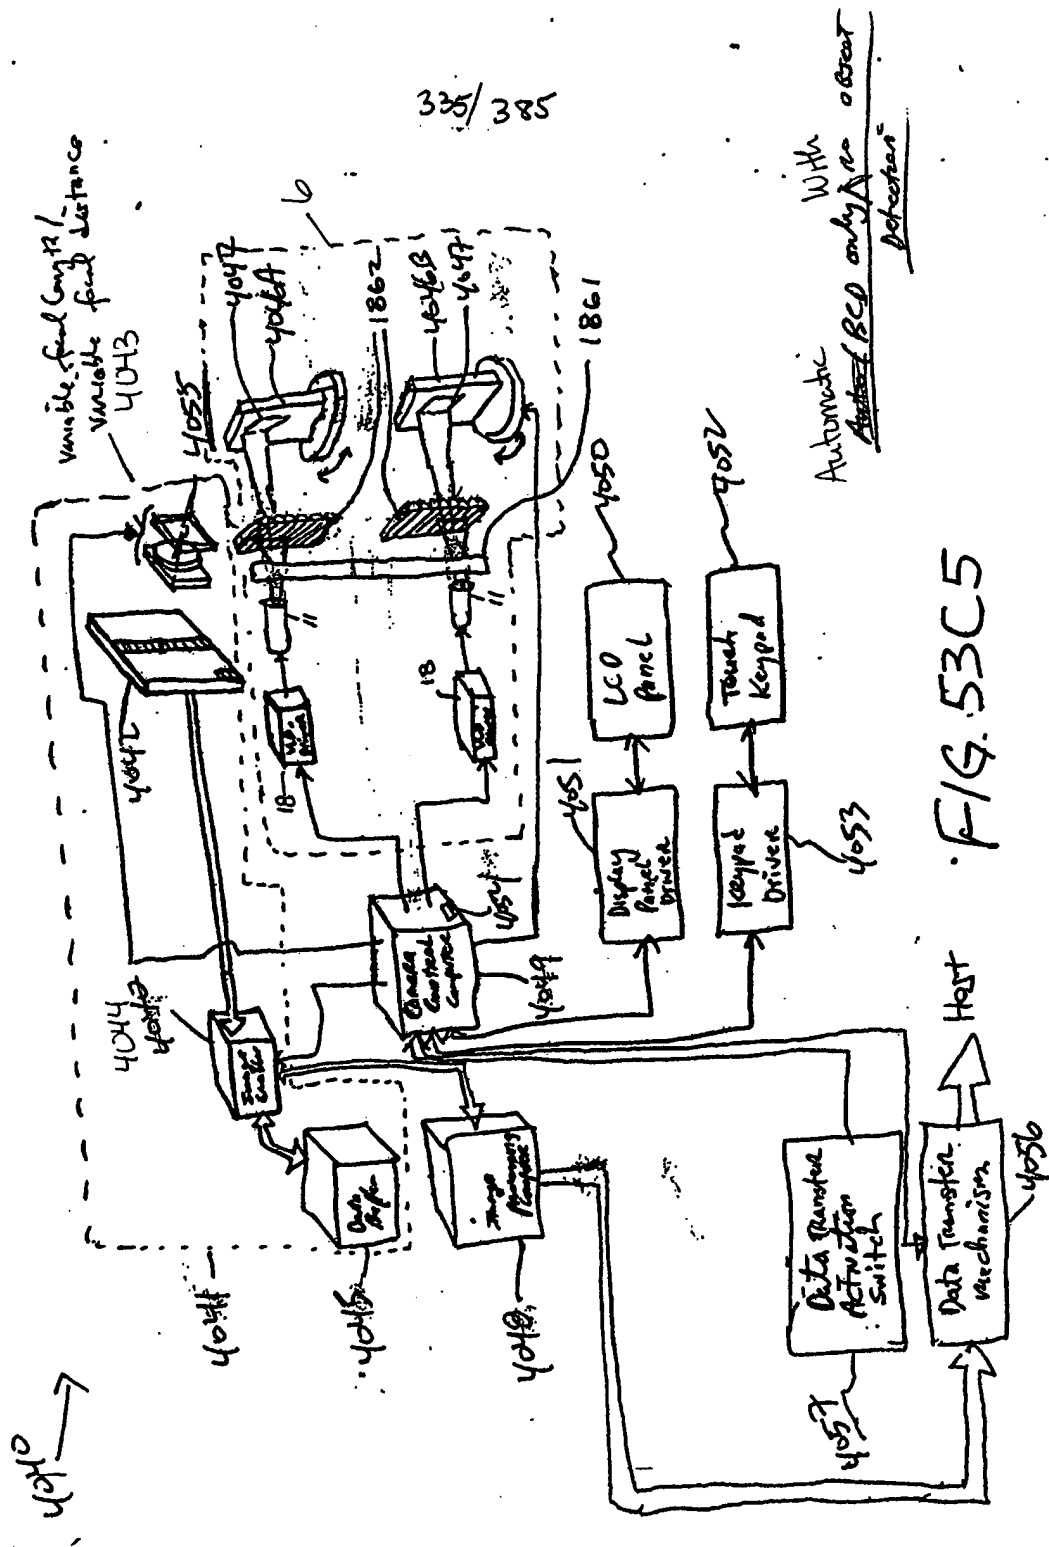 335/385
4040
variable focal length/
variable focal distance
4043
4055
6
4047
4046A
1862
4046B
4047
1861
4042
11
11
18
VLD
Driver
18
VLD
Driver
4044
Image
Grabber
4041
Data
Buffer
4045
Image
Processing
Computer
4048
Camera
Control
Computer
4054
4049
LCD
Panel
4050
Display
Panel
Driver
4051
Touch
Keypad
4052
Keypad
Driver
4053
Data Transfer
Activation
Switch
4057
Data Transfer
Mechanism
4056
Host
FIG. 53C5
Automatic With
BCD only no object
Detection